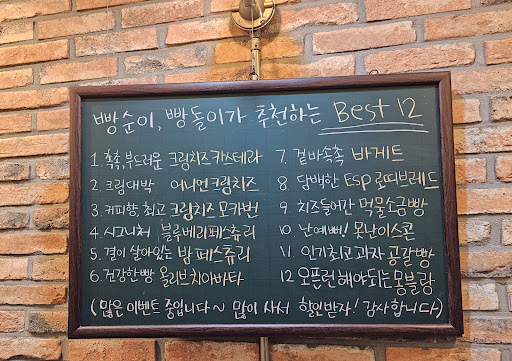 빵순이, 빵돌이가 추천하는 Best 12
1. 촉촉, 부드러운 크림치즈 카스테라
2. 크림대박 어니언크림치즈
3. 커피향, 최고 크림치즈 모카번
4. 시그니처 블루베리페스츄리
5. 결이 살아있는 밤 페스츄리
6. 건강한빵 올리브치아바타
7. 겉바속촉 바게트
8. 담백한 Esp 로띠브레드
9. 치즈들어간 먹물소금빵
10. 난예뻐! 못난이스콘
11. 인기최고과자 공갈빵
12. 오픈런해야되는 몽블랑
(많은 이벤트 중입니다~ 많이 사서 할인받자! 감사합니다)